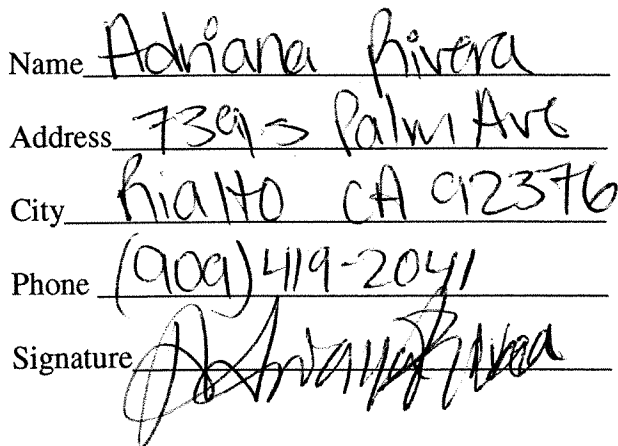 Name Adriana Rivera
Address 739 s Palm Ave
City Rialto CA 92376
Phone (909)419-2041
Signature Adriana Rivera